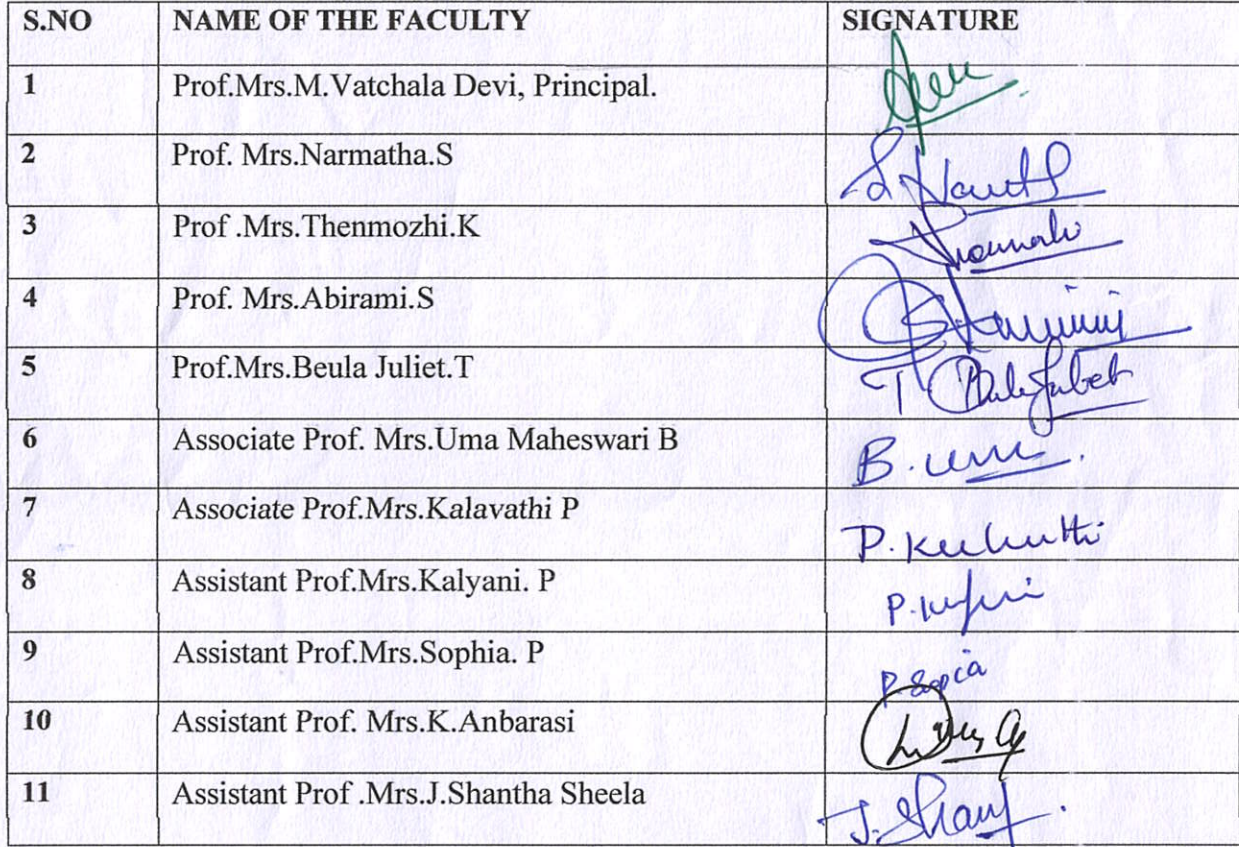 S.NO NAME OF THE FACULTY SIGNATURE
1 Prof.Mrs.M.Vatchala Devi, Principal.
2 Prof. Mrs.Narmatha.S
3 Prof .Mrs.Thenmozhi.K
4 Prof. Mrs.Abirami.S
5 Prof.Mrs.Beula Juliet.T T
6 Associate Prof. Mrs.Uma Maheswari B B.
7 Associate Prof.Mrs.Kalavathi P P.
8 Assistant Prof.Mrs.Kalyani. P P.
9 Assistant Prof.Mrs.Sophia. P P
10 Assistant Prof. Mrs.K.Anbarasi
11 Assistant Prof .Mrs.J.Shantha Sheela J.